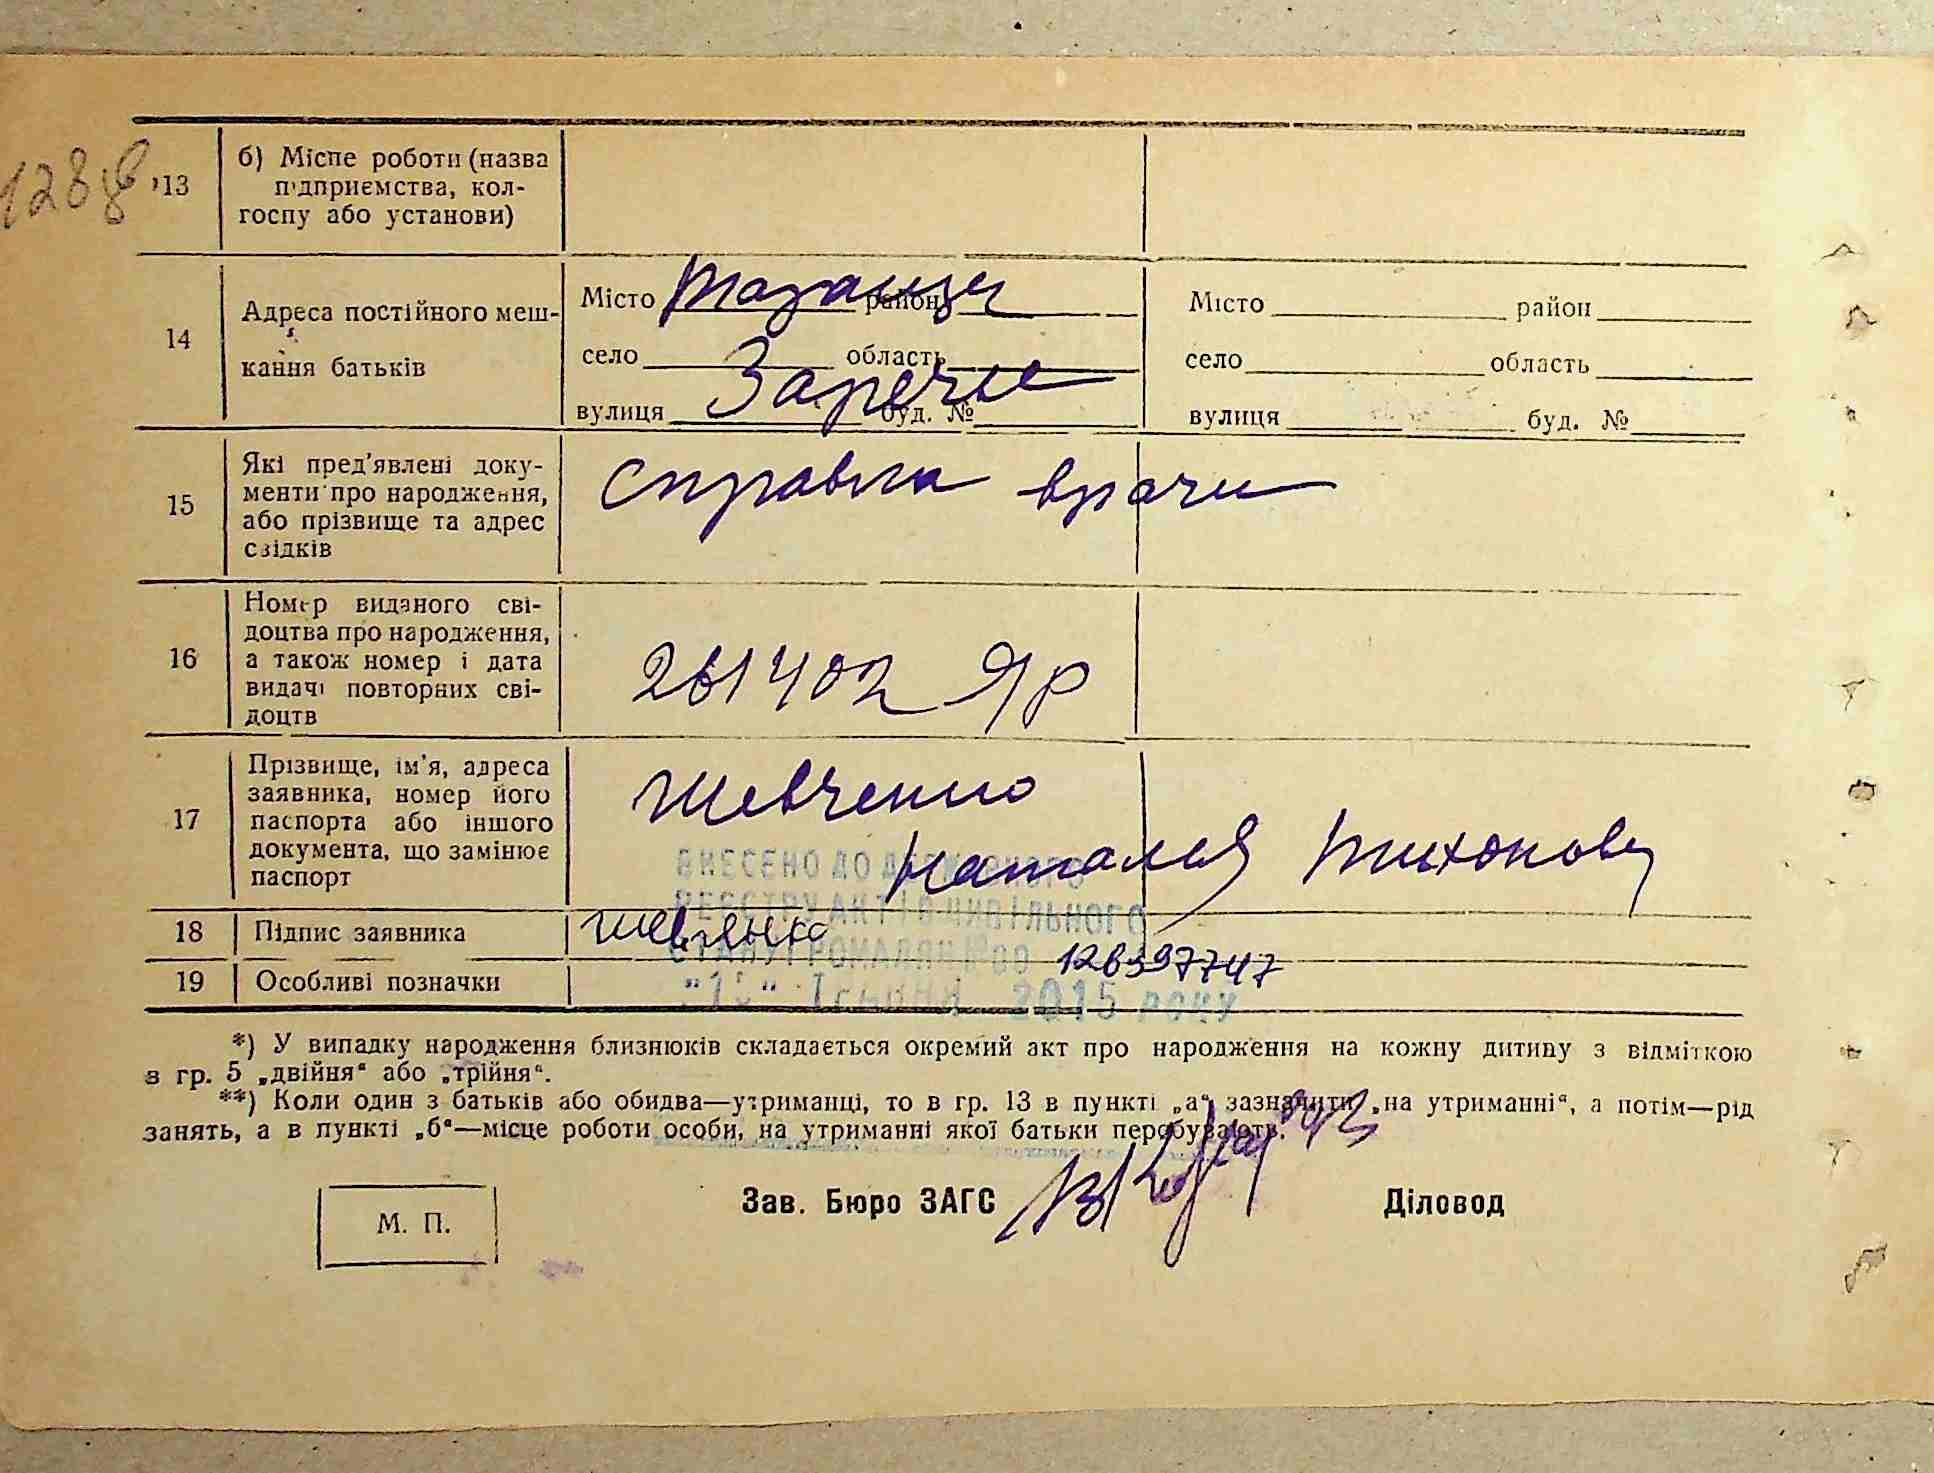 128
13
б) Місце роботи (назва
підприємства, кол-
госпу або установи)
14
Адреса постійного меш-
кання батьків
Місто Таганцу район
село область
вулиця Заречье буд. №
Місто район
село область
вулиця буд. №
15
Які пред'явлені доку-
менти про народження,
або прізвище та адрес
свідків
Справка врачи
16
Номер виданого сві-
доцтва про народження,
а також номер і дата
видачі повторних сві-
доцтв
261402 ЯР
17
Прізвище, ім'я, адреса
заявника, номер його
паспорта або іншого
документа, що замінює
паспорт
Шевченко
Наталья Тихонову
ВНЕСЕНО ДО ДЕРЖАВНОГО
РЕЄСТРУ АКТІВ ЦИВІЛЬНОГО
СТАНУ ГРОМАДЯН № 00
2015 РОКУ
18
Підпис заявника
19
Особливі позначки
*) У випадку народження близнюків складається окремий акт про народження на кожну дитину з відміткою
в гр. 5 „двійня“ або „трійня“.
**) Коли один з батьків або обидва—утриманці, то в гр. 13 в пункті „а“ зазначити „на утриманні“, а потім—рід
занять, а в пункті „б“—місце роботи особи, на утриманні якої батьки перебувають.
М. П.
Зав. Бюро ЗАГС
Діловод